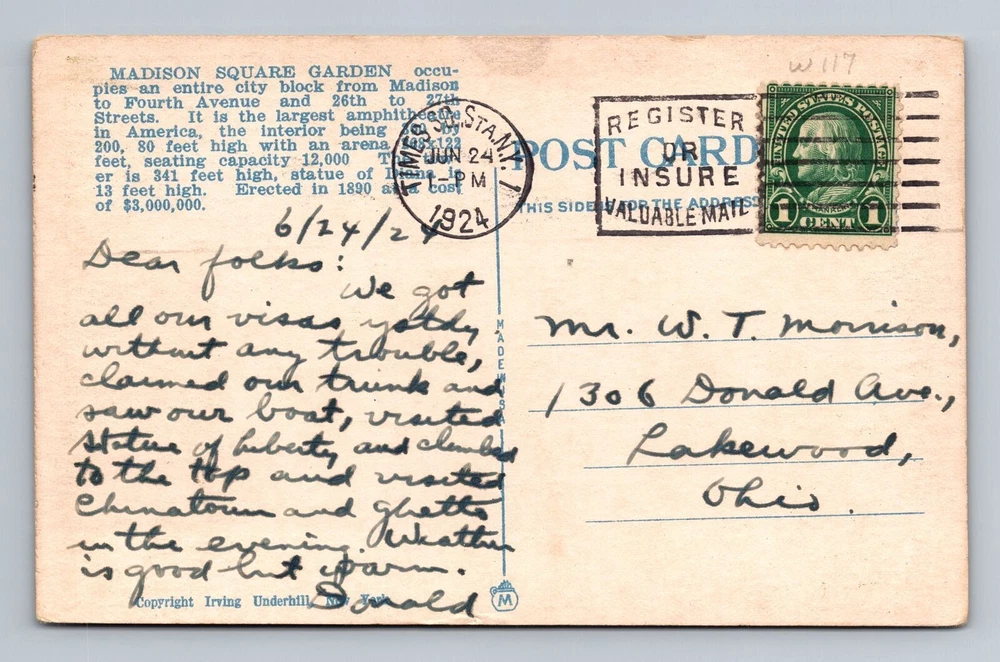 MADISON SQUARE GARDEN occu-
pies an entire city block from Madison
to Fourth Avenue and 26th to 27th
Streets. It is the largest amphitheatre
in America, the interior being by
200, 80 feet high with an arena
feet, seating capacity 12,000
er is 341 feet high, statue of
13 feet high. Erected in 1890 cost
of $3,000,000.
6/24/24
Dear folks:
We got
all our visas ystdy
without any trouble,
claimed our trunk and
saw our boat, visited
Statue of Liberty and climbed
to the top and visited
Chinatown and ghetto
in the evening. Weather
is good but warm.
Donald
Copyright Irving Underhill, New York
MADE IN
M
TIMES SQ. STA. N.Y.
JUN 24
1-PM
1924
1
REGISTER
OR
INSURE
VALUABLE MAIL
POST CARD
THIS SIDE FOR THE ADDRESS
W117
UNITED STATES POSTAGE
FRANKLIN
1 CENT 1
Mr. W. T. Morrison,
1306 Donald Ave.,
Lakewood,
Ohio.